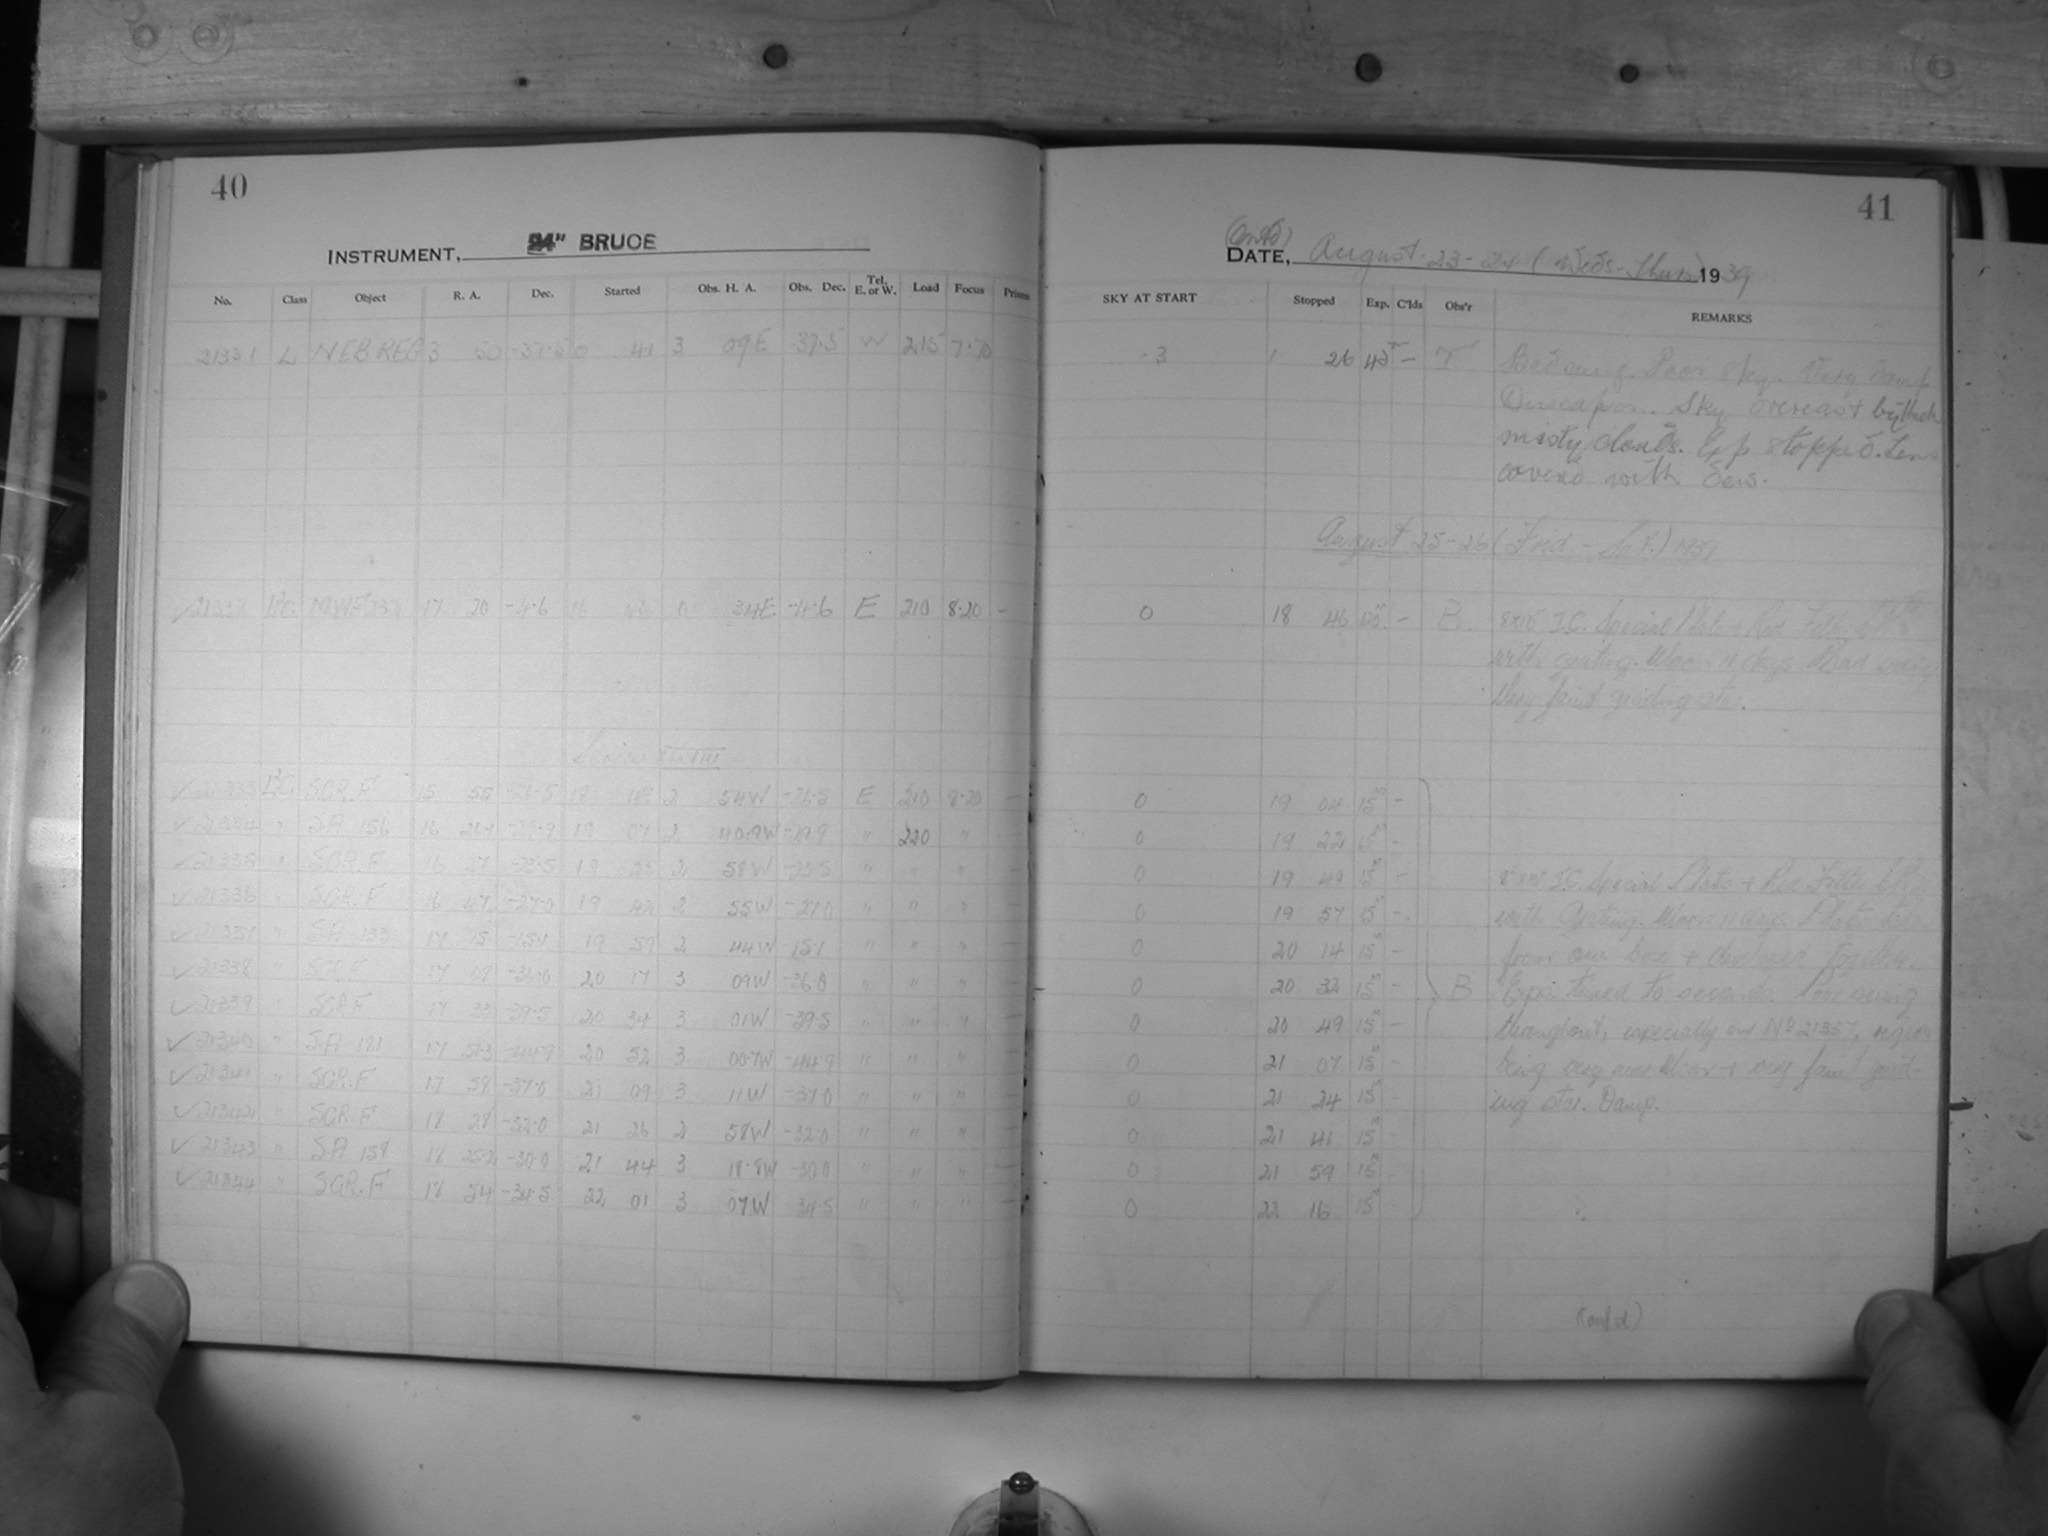 40
INSTRUMENT, 24" BRUCE
No. Class Object R. A. Dec. Started Obs. H. A. Obs. Dec. Tel. E. or W. Load Focus Prism
21331 L NEB REG 3 50 -37.5 0 41 3 09E -37.5 W 215 7.70
17 20 -4.6 16 46 0 34E -4.6 E 210 8.20 -
Series
✓ 21333 SGR.F 15 55 -26.5 18 49 2 54W -26.5 E 210 8.20 -
✓ 21334 " SA 156 16 19 07 2 " 220 "
✓ 21335 " SGR.F 16 27 -25.5 19 25 2 58W -25.5 " " "
✓ 21336 " SGR.F 16 47 -27.0 19 42 2 55W -27.0 " " "
✓ 21337 " SA 133 17 15 -15.1 19 59 2 44W -15.1 " " "
✓ 21338 " SGR.F 17 08 -36.0 20 17 3 09W -36.0 " " "
✓ 21339 " SGR.F 17 33 -39.5 20 34 3 01W -39.5 " " "
✓ 21340 " SA 181 17 51.3 -44.9 20 52 3 00.7W -44.9 " " "
✓ 21341 " SGR.F 17 58 -37.0 21 09 3 11W -37.0 " " "
✓ 21342 " SGR.F 18 28 -32.0 21 26 2 58W -32.0 " " "
✓ 21343 " SA 158 18 25.2 -30.0 21 44 3 18.8W -30.0 " " "
✓ 21344 " SGR.F 18 54 -34.5 22 01 3 07W -34.5 " " "
41
(Contd)
DATE, August 23-24 (Weds-Thurs) 1939
SKY AT START Stopped Exp. C'lds Obs'r REMARKS
3 1 26 45 - T Bad seeing. Poor sky. Very damp
Dewcap on. Sky overcast by thick
misty clouds. Exp stopped. Lens
covered with dew.
August 25-26 (Frid - Sat.) 1939
0 18 46 120 - B. 8x10 I.C. Special Plate + Red Filter
with grating. Moon 11 days. Bad seeing
Very faint guiding star.
0 19 04 15 -
0 19 22 15 -
0 19 40 15 - 8x10 I.C. Special Plates + Red Filter
0 19 57 15 - with Grating. Moon 11 days. Plates
0 20 14 15 - from one box + developed together.
0 20 32 15 - B Exps. timed to seconds. Poor seeing
0 20 49 15 - throughout, especially on No 21337, region
0 21 07 15 - being very near Moon + very faint guid-
0 21 24 15 - ing star. Damp.
0 21 41 15 -
0 21 59 15 -
0 22 16 15 -
(cont'd)